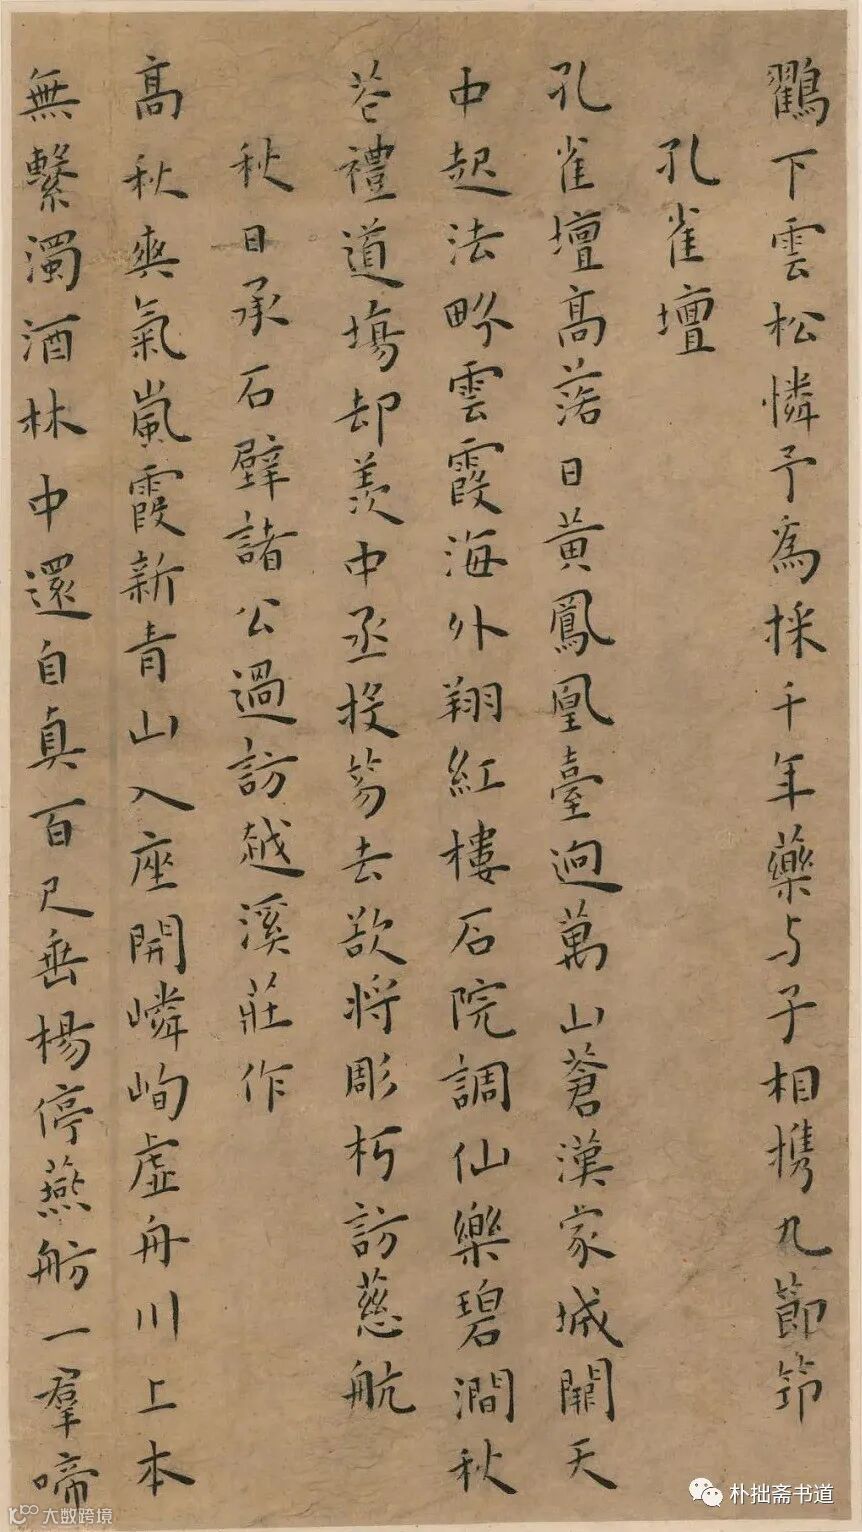 鸛下雲松憐予為採千年藥与子相携九節笻
孔雀壇
孔雀壇高落日黄鳳凰臺迥萬山蒼漢家城闕天
中起法界雲霞海外翔紅樓石院調仙樂碧澗秋
苍禮道塲却羡中丞投笏去欲将彫朽訪慈航
秋日承石壁諸公過訪越溪莊作
髙秋爽氣嵐霞新青山入座開嶙峋虛舟川上本
無繫濁酒林中還自真百尺垂楊停燕舫一羣啼
朴拙斋书道
大数跨境